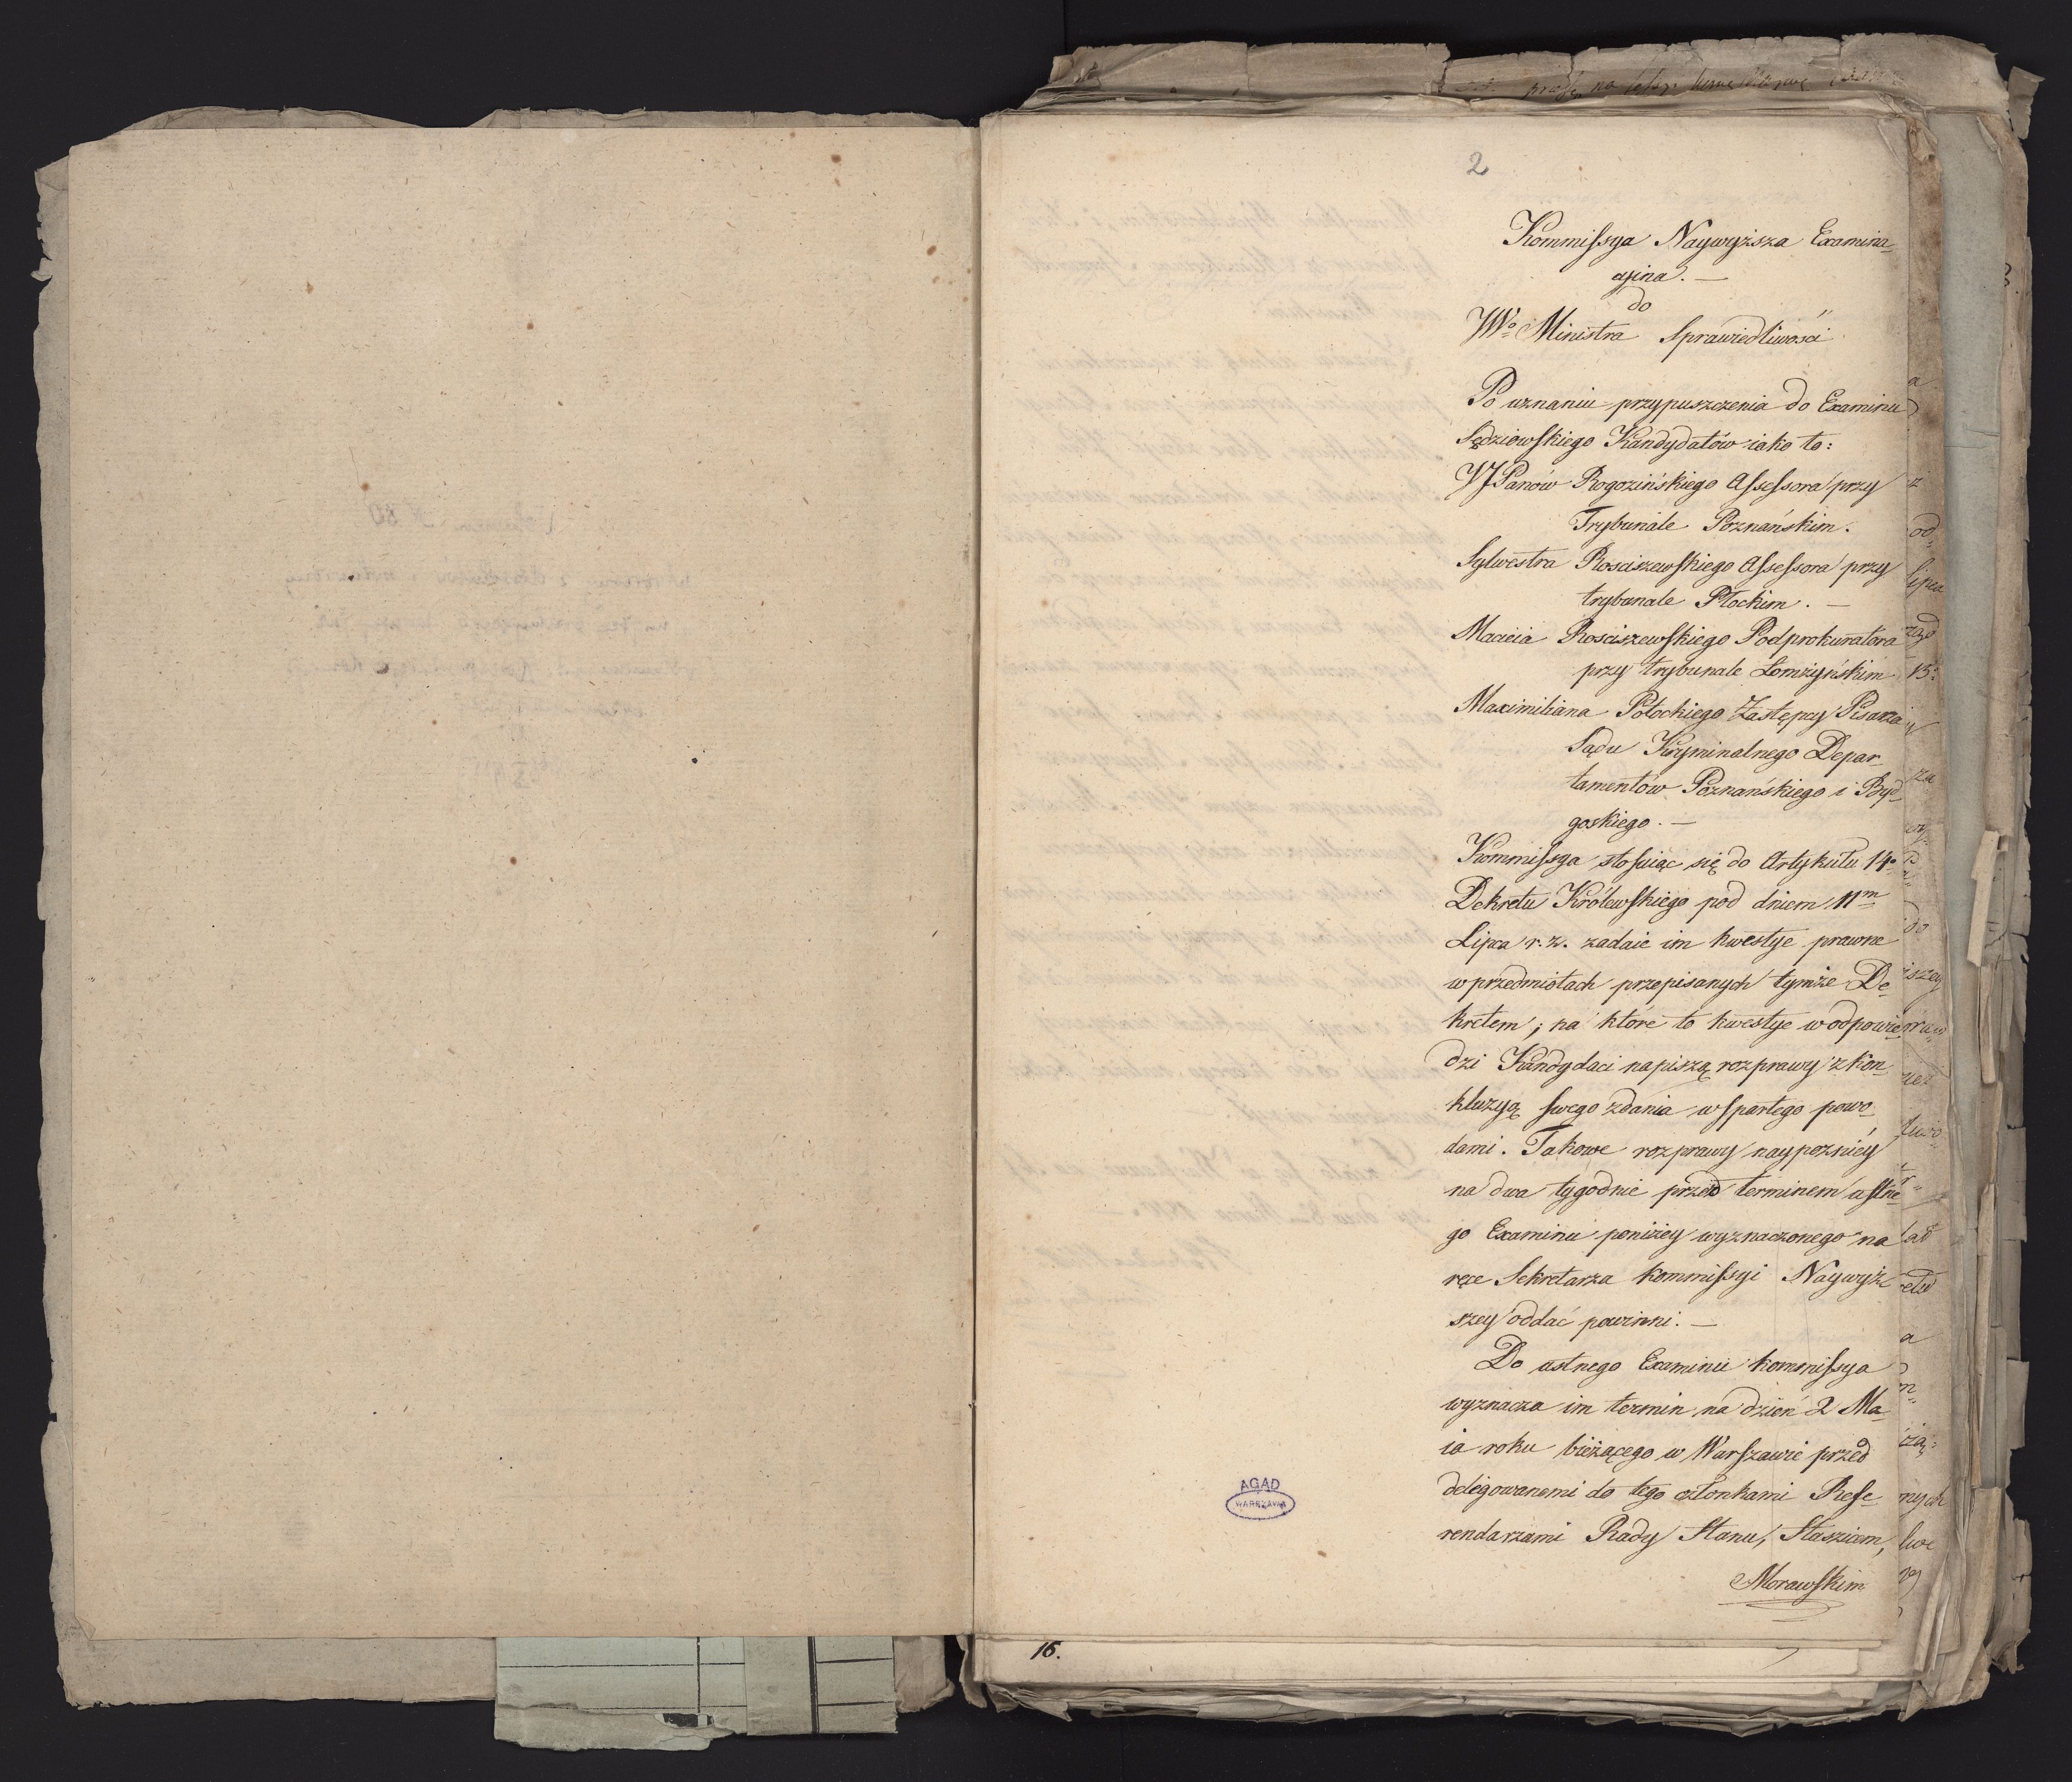 2
Kommissya Naywyższa Examina-
cyina. —
do
JWo Ministra Sprawiedliwości
Po uznaniu przypuszczenia do Examinu
Sędziowskiego Kandydatów iako to:
WJPanów Rogozińskiego Assessora przy
Trybunale Poznańskim.
Sylwestra Rosciszewskiego Assessora przy
trybunale Płockim. —
Macieia Rosciszewskiego Podprokuratora
przy trybunale Łomżyńskim
Maximiliana Potockiego Zastępcy Pisarza
Sądu Kryminalnego Depar-
tamentów Poznańskiego i Byd-
goskiego. —
Kommissya stosuiąc się do Artykułu 14o
Dekretu Królewskiego pod dniem 11m
Lipca r. z. zadaie im kwestye prawne
w przedmiotach przepisanych tymże De-
kretem; na które to kwestye w odpowie-
dzi Kandydaci napiszą rozprawy z kon-
kluzyą swego zdania wspartego powo-
dami. Takowe rozprawy naypozniéy
na dwa tygodnie przed terminem ustne-
go Examinu poniżey wyznaczonego na
ręce Sekretarza kommissyi Naywyż-
szey oddać powinni. —
Do ustnego Examinu kommissya
wyznacza im termin na dzień 2 Ma-
ia roku bieżącego w Warszawie przed
delegowanemi do tego członkami Refe-
rendarzami Rady Stanu, Staszicem,
Morawskim
AGAD
WARSZAWA
16.